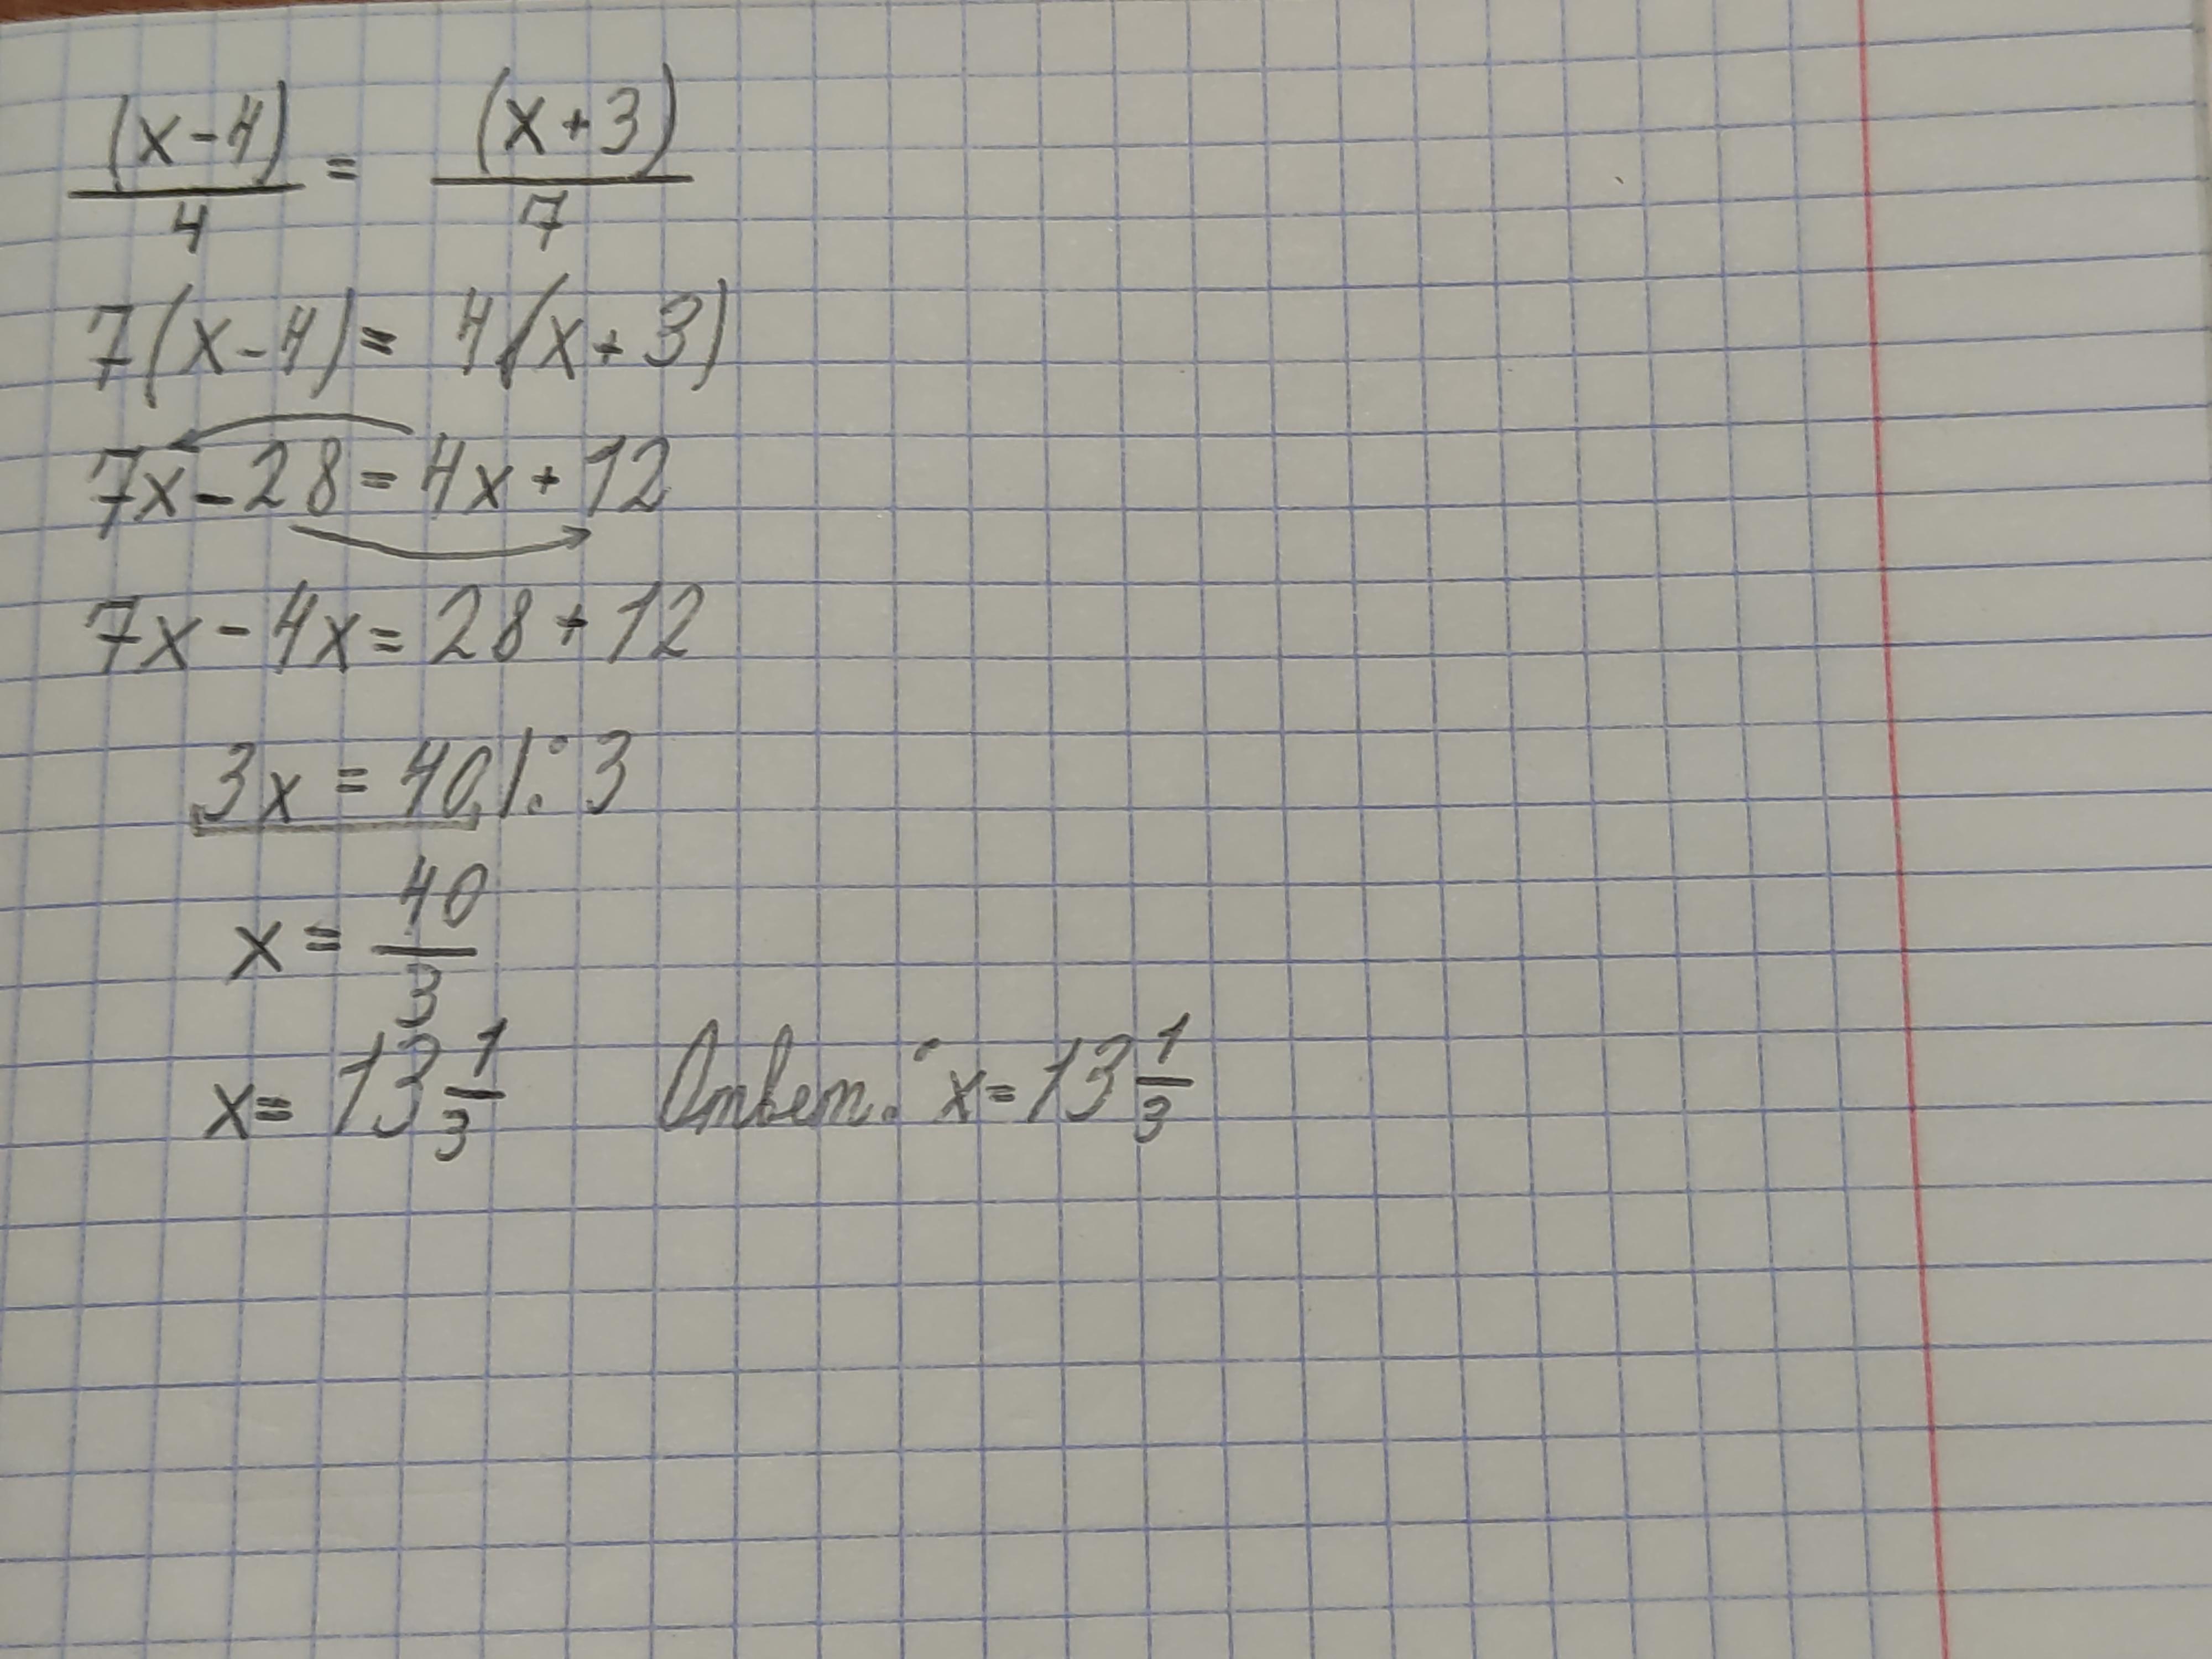 (x-4)/4 = (x+3)/7
7(x-4) = 4(x+3)
7x-28=4x+12
7x-4x=28+12
3x = 40 |:3
x = 40/3
x= 13 1/3 Ответ: x=13 1/3